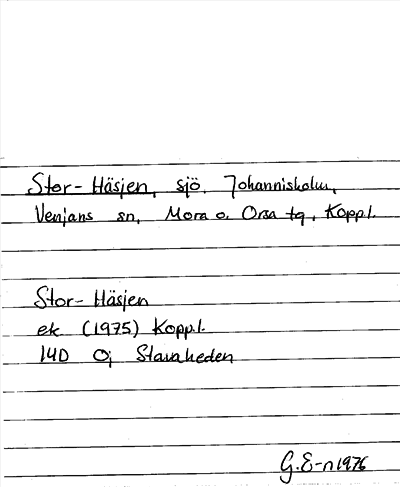 Stor-Häsjen, sjö, Johannisholm,
Venjans sn, Mora o. Orsa tg, Koppl.
Stor-Häsjen
ek (1975) Koppl.
14D 0j Stavaheden
G.E-n 1976